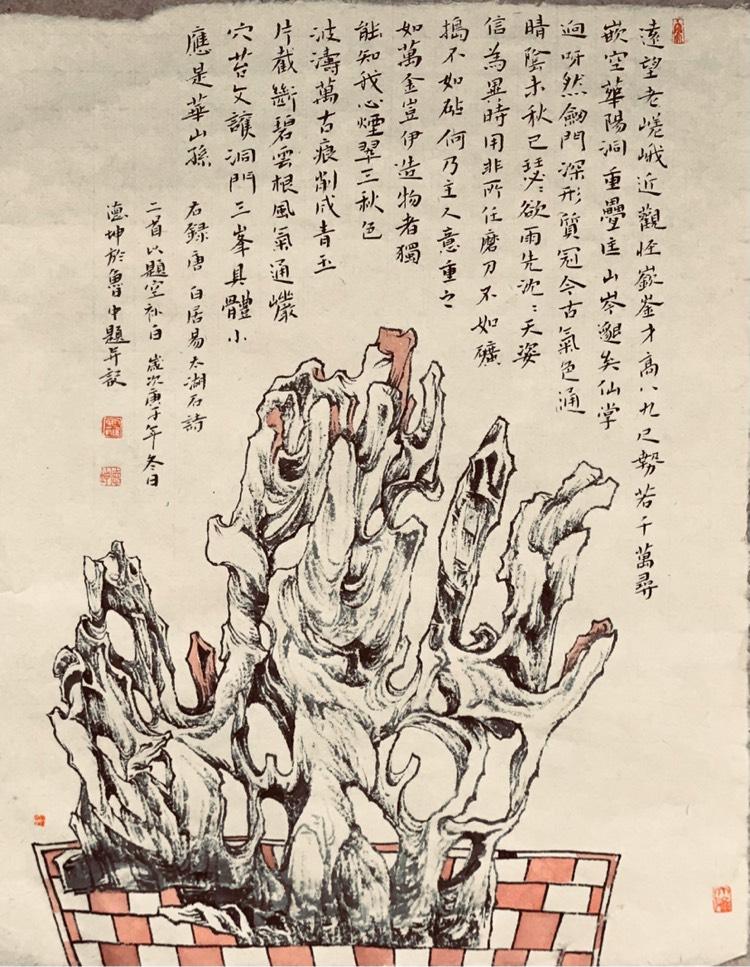 遠望老嵯峨近觀怪嶔崟才高八九尺勢若千萬尋
嵌空華陽洞重疊匡山岑邈矣仙掌
迥呀然劒門深形質冠今古氣色通
晴陰未秋已瑟〻欲雨先沈〻天姿
信為異時用非所任磨刀不如礪
搗不如砧何乃主人意重之
如萬金豈伊造物者獨
能知我心煙翠三秋色
波濤萬古痕削成青玉
片截斷碧雲根風氣通巖
穴苔文護洞門三峯具體小
應是華山孫
右録唐 白居易太湖石詩
二首以題空補白 歲次庚子年冬日
德坤於魯中題并記